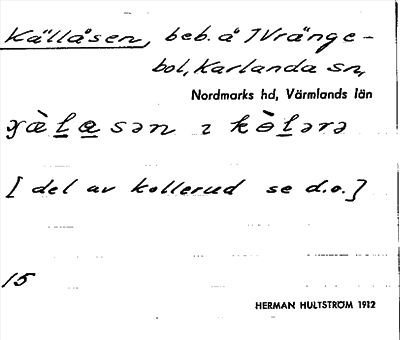 Källåsen, beb. å Vränge-
bol, Karlanda sn,
Nordmarks hd, Värmlands län
[ del av kollerud se d.o.]
15
HERMAN HULTSTRÖM 1912